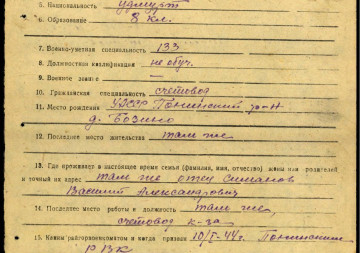 5. Национальность удмурт
6. Образование 8 кл.
7. Военно-учетная специальность 133
8. Должностная квалификация не обуч.
9. Военное звание —
10. Гражданская специальность счетовод
11. Место рождения УАССР Понинский р-н
д. Бозино
12. Последнее место жительства там же
13. Где проживает в настоящее время семья (фамилия, имя, отчество) жены или родителей
и точный их адрес там же отец Симанов
Василий Александрович
14. Последнее место работы и должность там же,
счетовод к-за
15. Каким райгорвоенкоматом и когда призван 10/I-44г. Понинским
РВК